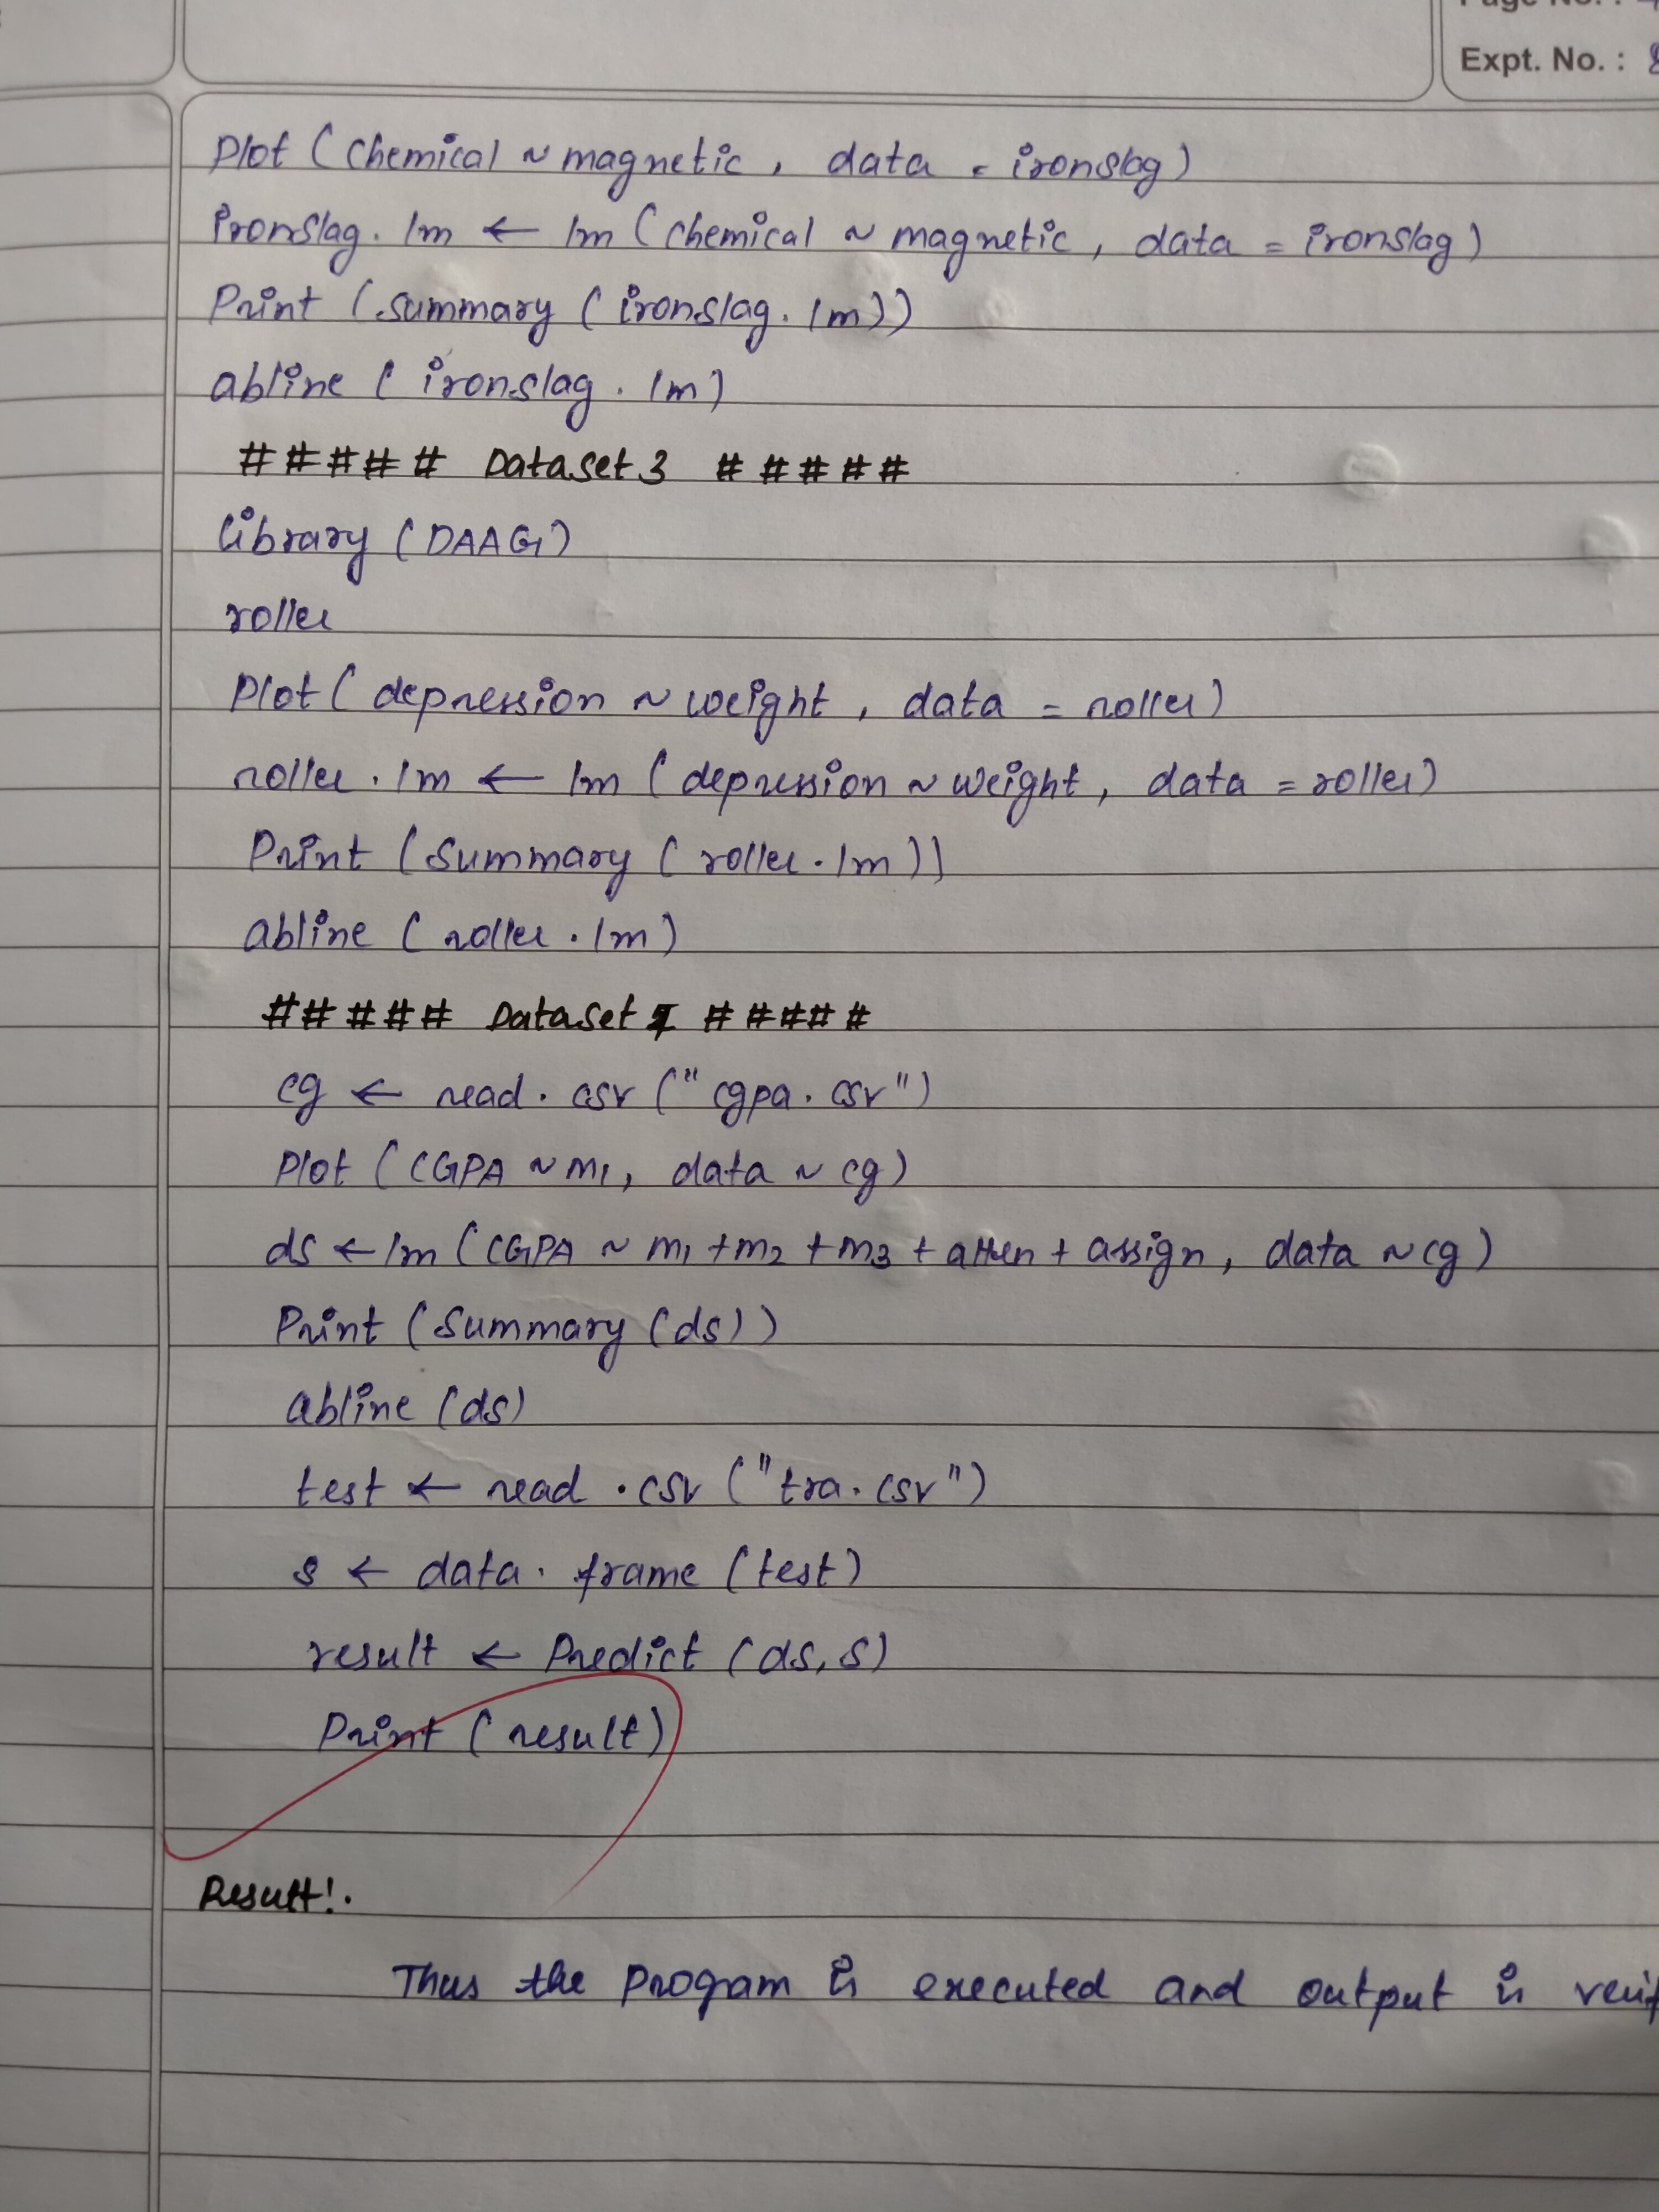 Page No. :
Expt. No. : 8
Plot (chemical ~ magnetic, data = ironslag)
ironslag.lm ← lm (chemical ~ magnetic, data = ironslag)
Print (summary (ironslag.lm))
abline (ironslag.lm)
##### Dataset 3 #####
library (DAAG)
roller
Plot (depression ~ weight, data = roller)
roller.lm ← lm (depression ~ weight, data = roller)
Print (Summary (roller.lm))
abline (roller.lm)
##### Dataset #####
cg ← read.csv ("cgpa.csv")
Plot (CGPA ~ m1, data ~ cg)
ds ← lm (CGPA ~ m1 + m2 + m3 + atten + assign, data ~ cg)
Print (Summary (ds))
abline (ds)
test ← read.csv ("tra.csv")
s ← data.frame (test)
result ← Predict (ds, s)
Print (result)
Result:.
Thus the program is executed and output is